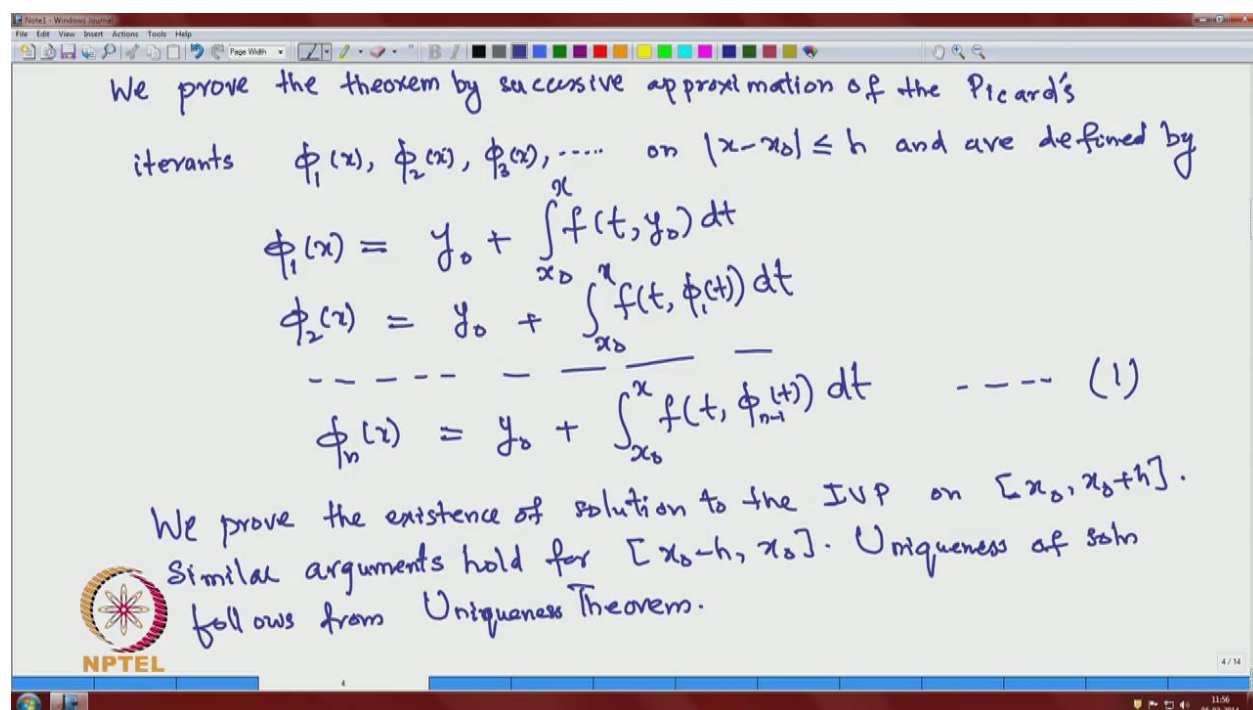 Note1 - Windows Journal
File Edit View Insert Actions Tools Help
Page Width
We prove the theorem by successive approximation of the Picard's
iterants ϕ₁(x), ϕ₂(x), ϕ₃(x), ..... on |x-x₀| ≤ h and are defined by
ϕ₁(x) = y₀ + ∫_{x₀}^{x} f(t, y₀) dt
ϕ₂(x) = y₀ + ∫_{x₀}^{x} f(t, ϕ₁(t)) dt
- - - - - - — — — —
ϕₙ(x) = y₀ + ∫_{x₀}^{x} f(t, ϕₙ₋₁(t)) dt ---- (1)
We prove the existence of solution to the IVP on [x₀, x₀+h].
Similar arguments hold for [x₀-h, x₀]. Uniqueness of soln
follows from Uniqueness Theorem.
NPTEL
4 / 14
4
11:56